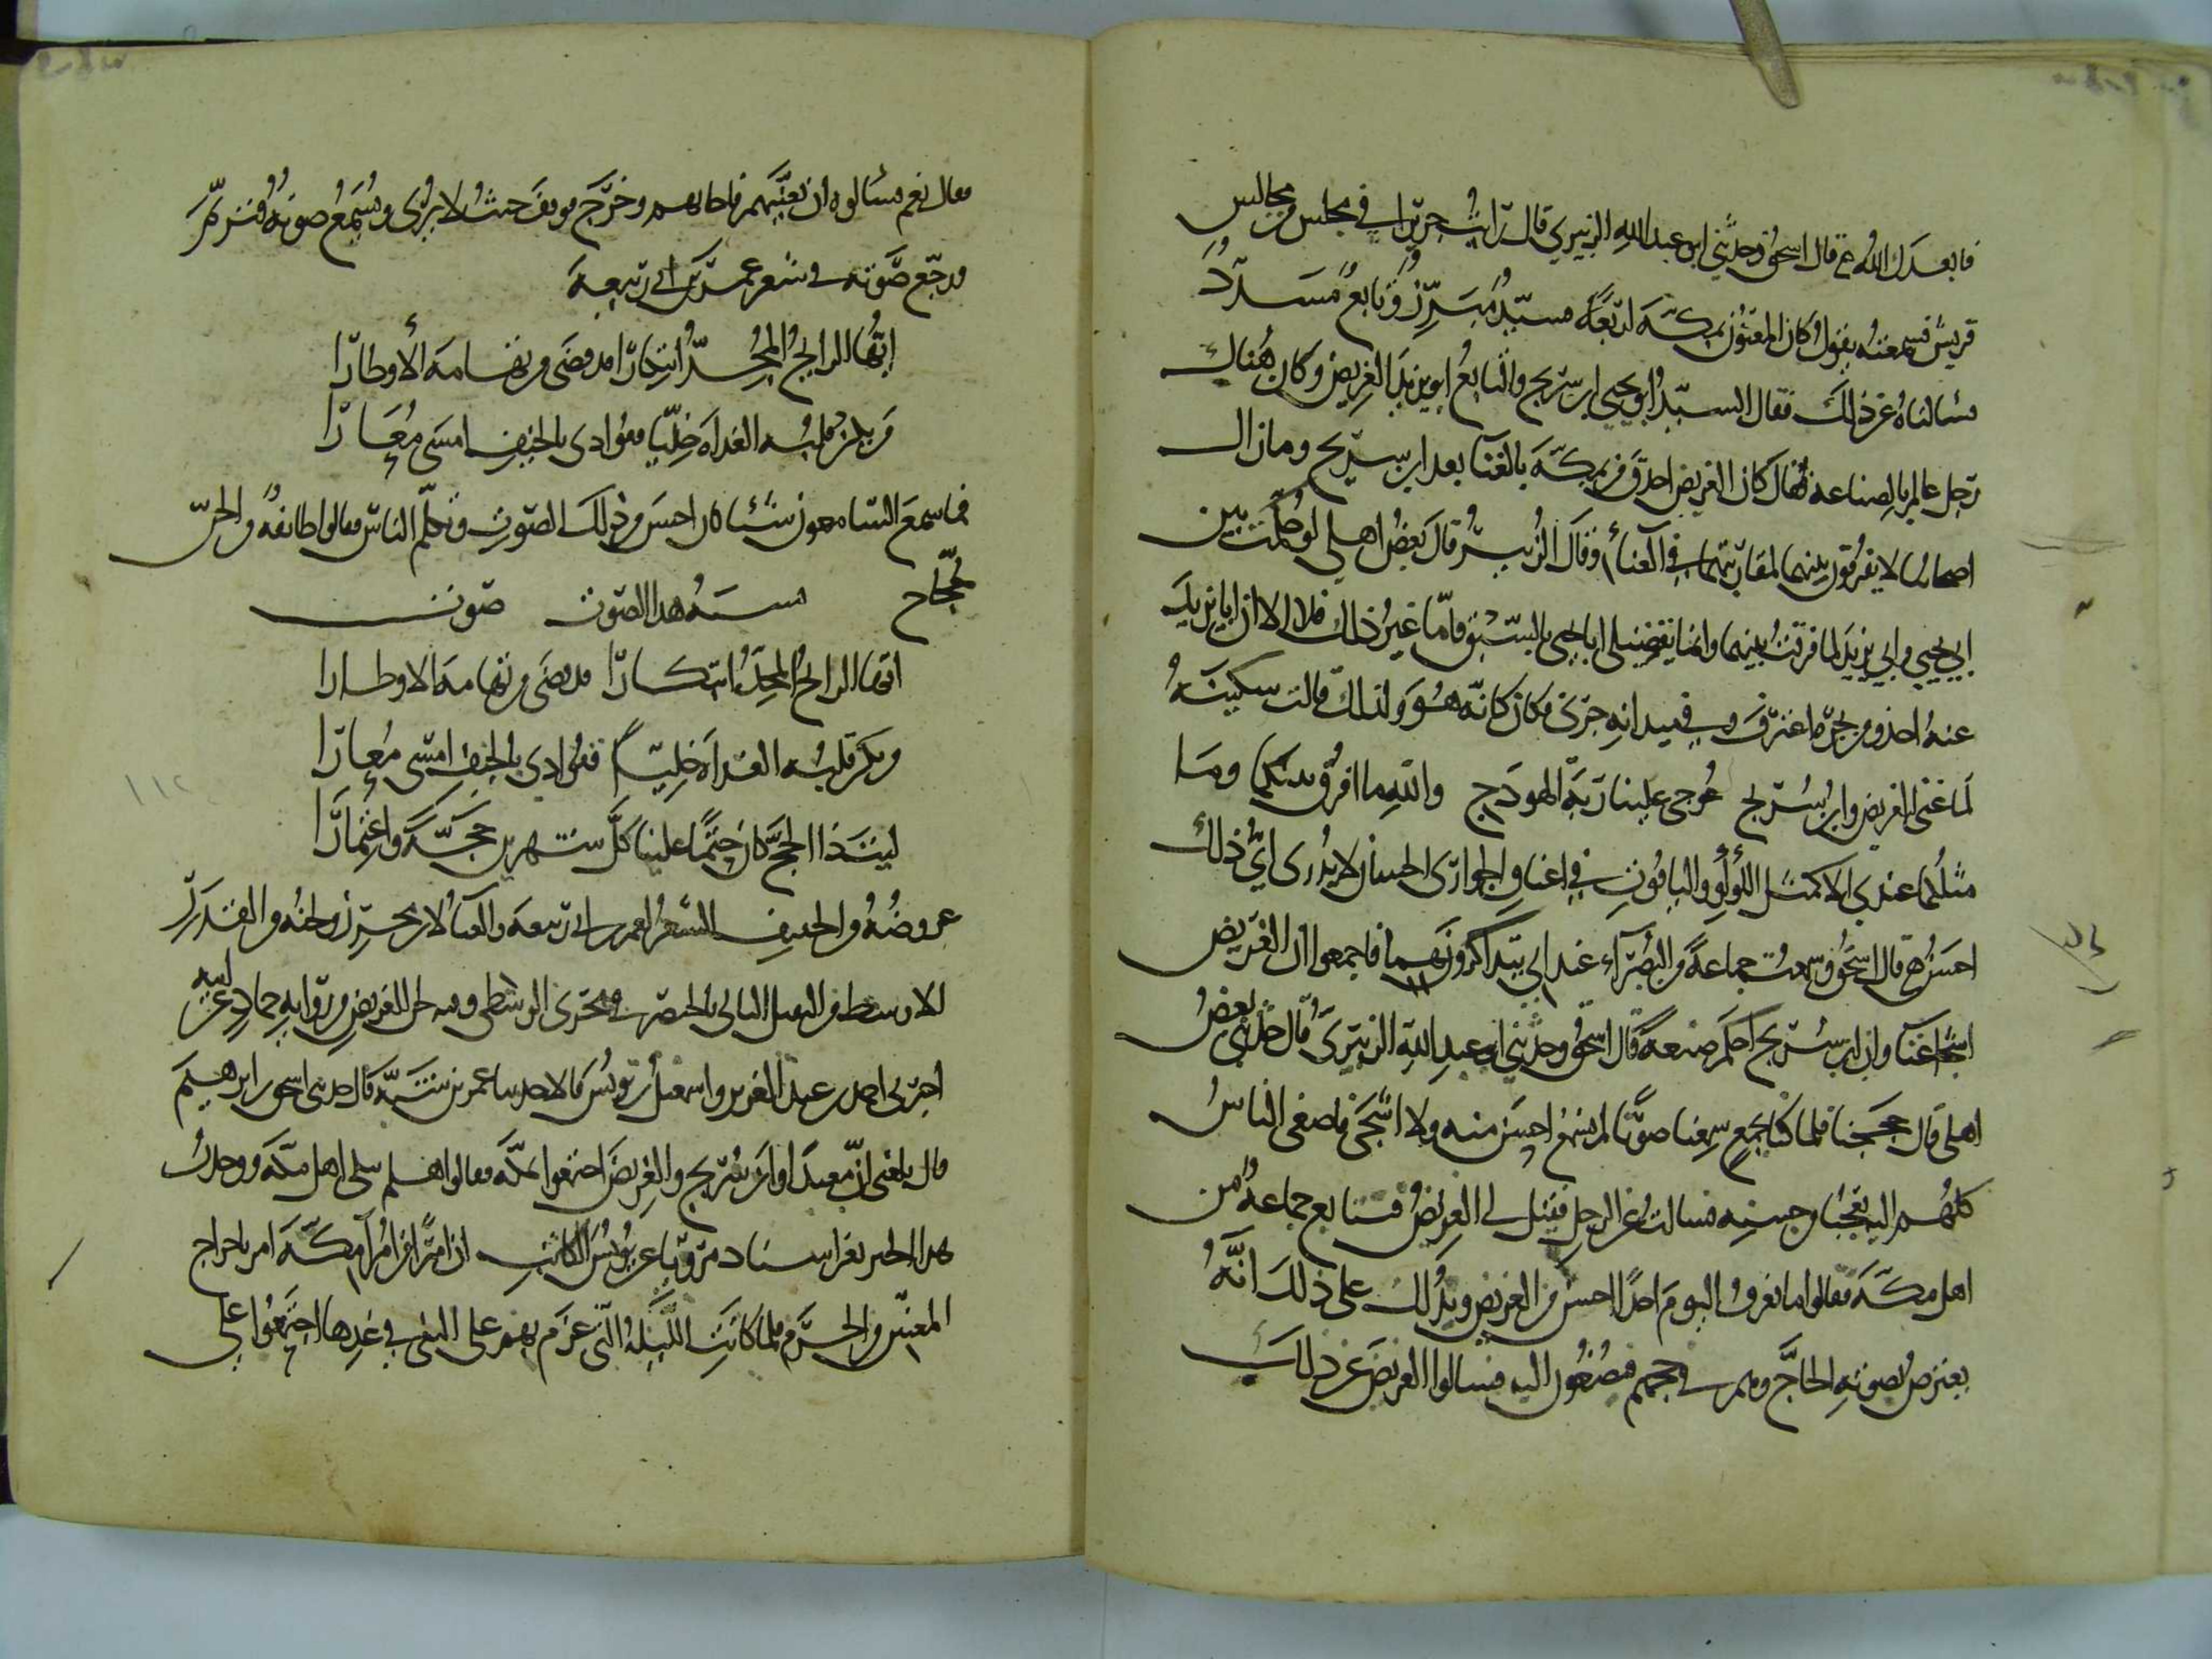 فابعدك الله قال اسحق وحدثني ابو عبد الله الزبيري قال رايت جريرا في مجلس من مجالس
قريش فسمعته يقول كان المغنون بمكة اربعة سيد مبرز وتابع مسدد
فسالناه عن ذلك فقال السيد ابو يحيى ابن سريج والتابع ابو يزيد الغريض وكان هناك
رجل عالم بالصناعه فقال كان الغريض احذق من بمكة بالغنا بعد ابن سريج ومازال
اصحابنا لا يفرقون بينهما لمقاربتهما في الغناء وقال الزبيري قال بعض اهلي لو حكمت بين
ابي يحيى وابي يزيد لما فرقت بينهما وانما تفضيلي ابا يحيى بالسبق فاما غير ذلك فلا الا ان ابا يزيد
عنه اخذ ومن بحره اغترف وفي ميدانه جرى فكان كانه هو ولذلك قالت سكينة
لما غنى الغريض وابن سريج عوجي علينا ربة الهودج والله ما افرق بينكما وما
مثلكما عندي الا كمثل اللؤلؤ والياقوت في اعناق الجواري الحسان لا يدرى اي ذلك
احسن قال اسحق وسمعت جماعة من البصراء عند ابي يتذاكرونهما فاجمعوا ان الغريض
اشجا غنا وان ابن سريج احكم صنعة قال اسحق وحدثني ابو عبد الله الزبيري قال حدثني بعض
اهلي قال حججنا فلما كنا بجمع سمعنا صوتا لم نسمع احسن منه ولا اشجى فاصغى الناس
كلهم اليه تعجبا من حسنه فسالت عن الرجل فقيل لي الغريض فتتابع جماعة من
اهل مكة فقالوا ما نعرف اليوم احدا احسن من الغريض ويدلك على ذلك انه
يعترض بصوته الحاج وهم في حجهم فيصغون اليه فسالوا الغريض عن ذلك
فقال نعم فسالوه ان يغنيهم فاجابهم وخرج فوقف حيث لا يرى ويسمع صوته فترنم
ورجع صوته في شعر عمر بن ابي ربيعه
ايها الرايح المجد ابتكارا قد قضى من تهامه الأوطارا
من يكن قلبه الغداة خليا ففؤادي بالخيف امسى معارا
فما سمع السامعون شئا كان احسن من ذلك الصوت وتكلم الناس فقالوا طائفة من الجن
حجاج نسبة هذا الصوت صوت
ايها الرايح المجد ابتكارا قد قضى من تهامه الاوطارا
من يكن قلبه الغداة خليا ففؤادي بالخيف امسى معارا
ليت ذا الحج كان حتما علينا كل شهرين حجة واعتمارا
عروضه من الخفيف الشعر لعمر بن ابي ربيعه والغنا لابن محرز ولحنه من القدر
الاوسط من الثقيل الثاني بالخنصر في مجرى الوسطى وفيه لحن للغريض من رواية حماد عن ابيه
اخبرني احمد بن عبد العزيز واسمعيل بن يونس قالا حدثنا عمر بن شبة قال حدثني اسحق بن ابرهيم
قال بلغني ان معبدا وابن سريج والغريض اجتمعوا بمكة فقالوا هلم نبكي اهل مكة ووجدت
هذا الخبر بغير اسناد مرويا عن يونس الكاتب ان اميرا من امراء مكة امر باخراج
المغنين من الحرم فلما كانت الليلة التي عزم بهم على النفي في غدها اجتمعوا على